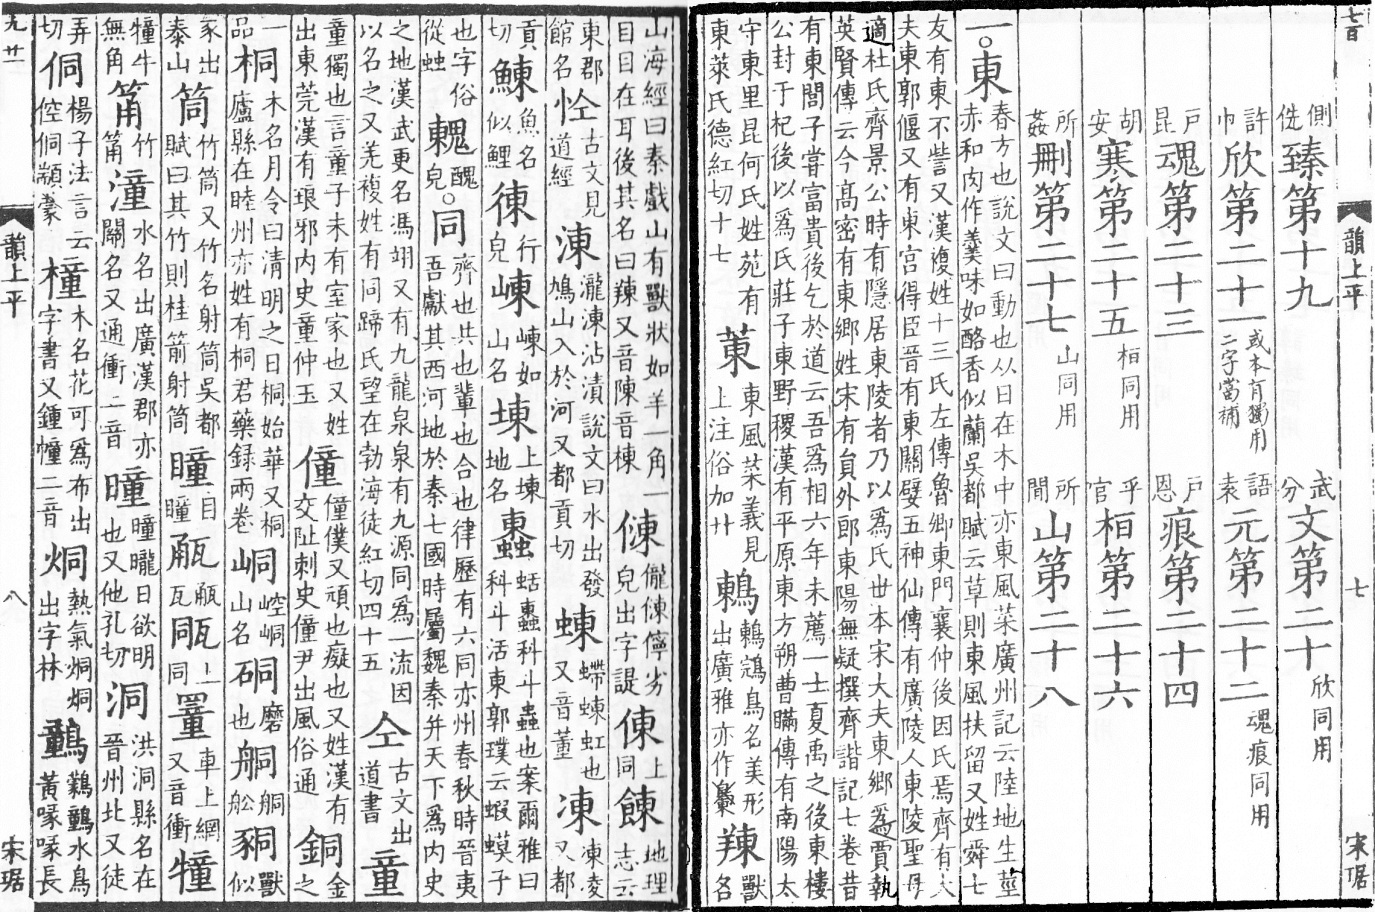 七百 韻上平 七 宋琚
側詵臻第十九 武分文第二十欣同用
許巾欣第二十一或本有獨用二字當補 語袁元第二十二魂痕同用
戶昆魂第二十三 戶恩痕第二十四
胡安寒第二十五桓同用 乎官桓第二十六
所姦刪第二十七山同用 所閒山第二十八
一○東春方也說文曰動也从日在木中亦東風菜廣州記云陸地生莖赤和肉作羹味如酪香似蘭吳都賦云草則東風扶留又姓舜七
友有東不訾又漢複姓十三氏左傳魯卿東門襄仲後因氏焉齊有大夫東郭偃又有東宮得臣晉有東關嬖五神仙傳有廣陵人東陵聖母
適杜氏齊景公時有隱居東陵者乃以爲氏世本宋大夫東鄉爲賈執英賢傳云今高密有東鄉姓宋有員外郎東陽無疑撰齊諧記七卷昔
有東閭子嘗富貴後乞於道云吾爲相六年未薦一士夏禹之後東樓公封于杞後以爲氏莊子東野稷漢有平原東方朔曹瞞傳有南陽太
守東里昆何氏姓苑有東萊氏德紅切十七菄東風菜義見上注俗加艹鶇鶇鵍鳥名美形出廣雅亦作䍶獸名
山海經曰秦戲山有獸狀如羊一角一目目在耳後其名曰䍶又音陳音棟㑈儱㑈儜劣皃出字諟倲上同餗地理志云
東郡館名㤏古文見道經涷瀧涷沾漬說文曰水出發鳩山入於河又都貢切蝀螮蝀虹也又音董凍凍凌又都
貢切鯟魚名似鯉徚行皃崠崠如山名埬上埬地名䗢蛞䗢科斗蟲也案爾雅曰科斗活東郭璞云蝦蟆子
也字俗從虫𩳣醜皃○同齊也共也輩也合也律歷有六同亦州春秋時晉夷吾獻其西河地於秦七國時屬魏秦幷天下爲內史
之地漢武更名馮翊又有九龍泉泉有九源同爲一流因以名之又羌複姓有同蹄氏望在勃海徒紅切四十五仝古文出道書童
童獨也言童子未有室家也又姓出東莞漢有琅邪內史童仲玉僮僮僕又頑也癡也又姓漢有交阯刺史僮尹出風俗通銅金之
一品桐木名月令曰清明之日桐始華又桐廬縣在睦州亦姓有桐君藥錄兩卷峒崆峒山名硐磨也䑸䑸舩䝆獸似
豕出泰山筒竹筒又竹名射筒吳都賦曰其竹則桂箭射筒瞳目瞳㼧㼧瓦𤭁上同罿車上網又音衝犝
犝牛無角筩竹筩潼水名出廣漢郡亦關名又通衝二音曈曈曨日欲明也又他孔切洞洪洞縣名在晉州北又徒
弄切侗楊子法言云倥侗顓蒙橦木名花可爲布出字書又鍾幢二音烔熱氣烔烔出字林鷣鷣水鳥黃喙喙長
九廿 韻上平 八 宋琚